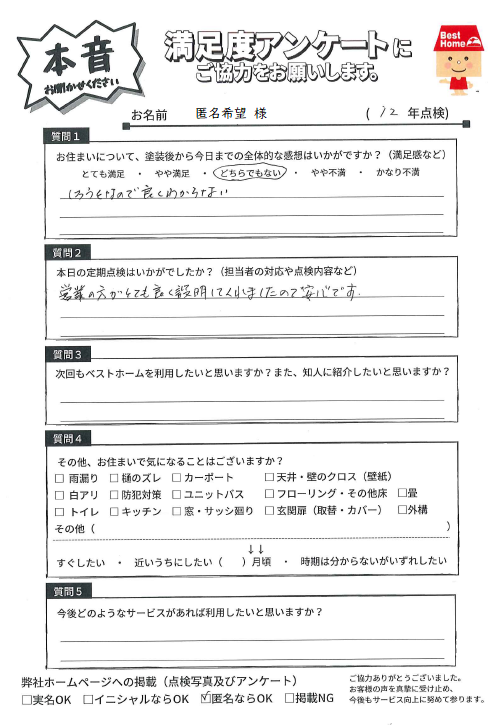 本音
お聞かせください
満足度アンケートに
ご協力をお願いします。
Best
Home
お名前 匿名希望 様 ( 12 年点検)
質問1
お住まいについて、塗装後から今日までの全体的な感想はいかがですか?(満足感など)
とても満足 ・ やや満足 ・ どちらでもない ・ やや不満 ・ かなり不満
しろうとなので良くわからない
質問2
本日の定期点検はいかがでしたか?(担当者の対応や点検内容など)
営業の方がとても良く説明してくれましたので安心です.
質問3
次回もベストホームを利用したいと思いますか?また、知人に紹介したいと思いますか?
質問4
その他、お住まいで気になることはございますか?
□ 雨漏り □ 樋のズレ □ カーポート □ 天井・壁のクロス(壁紙)
□ 白アリ □ 防犯対策 □ ユニットバス □ フローリング・その他床 □畳
□ トイレ □ キッチン □ 窓・サッシ廻り □ 玄関扉(取替・カバー) □外構
その他( )
↓↓
すぐしたい ・ 近いうちにしたい( )月頃 ・ 時期は分からないがいずれしたい
質問5
今後どのようなサービスがあれば利用したいと思いますか?
弊社ホームページへの掲載(点検写真及びアンケート)
□実名OK □イニシャルならOK ☑匿名ならOK □掲載NG
ご協力ありがとうございました。
お客様の声を真摯に受け止め、
今後もサービス向上に努めて参ります。